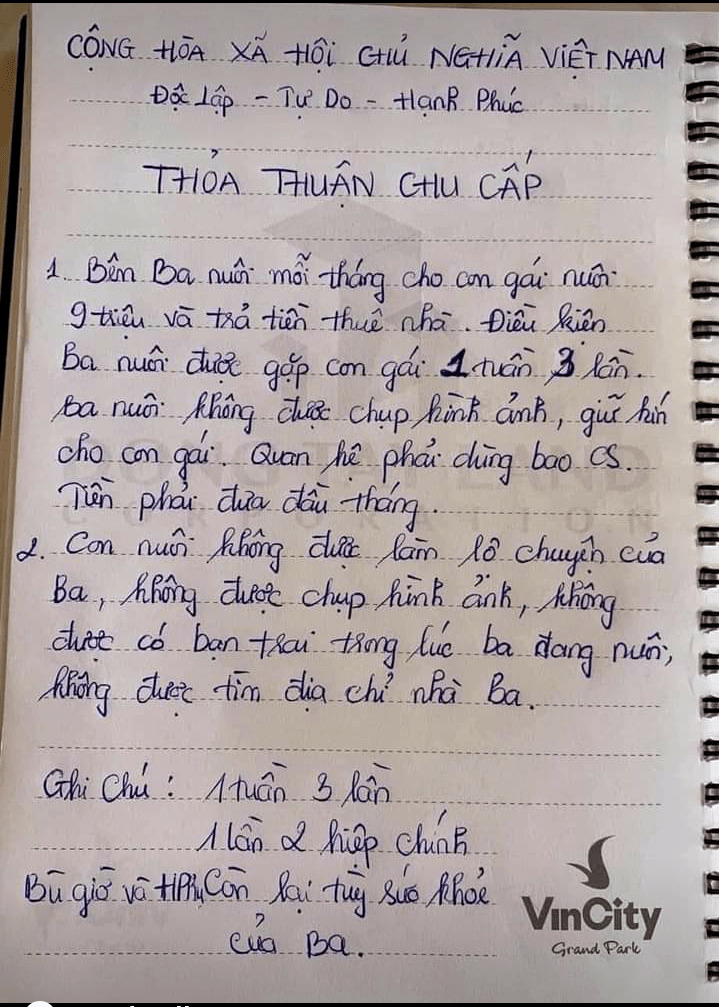 CỘNG HÒA XÃ HỘI CHỦ NGHĨA VIỆT NAM
Độc Lập - Tự Do - Hạnh Phúc
THỎA THUẬN CHU CẤP
1. Bên Ba nuôi mỗi tháng cho con gái nuôi
9 triệu và trả tiền thuê nhà. Điều kiện
Ba nuôi được gặp con gái 1 tuần 3 lần.
Ba nuôi không được chụp hình ảnh, giữ kín
cho con gái. Quan hệ phải dùng bao CS.
Tiền phải đưa đầu tháng.
2. Con nuôi không được làm lộ chuyện của
Ba, không được chụp hình ảnh, không
được có bạn trai trong lúc ba đang nuôi,
không được tìm địa chỉ nhà Ba.
Ghi Chú: 1 tuần 3 lần
1 lần 2 hiệp chính
Bù giờ và HPhụ Còn lại tuỳ sức khoẻ
của Ba.
VinCity
Grand Park
DONG TAY LAND
CORPORATION